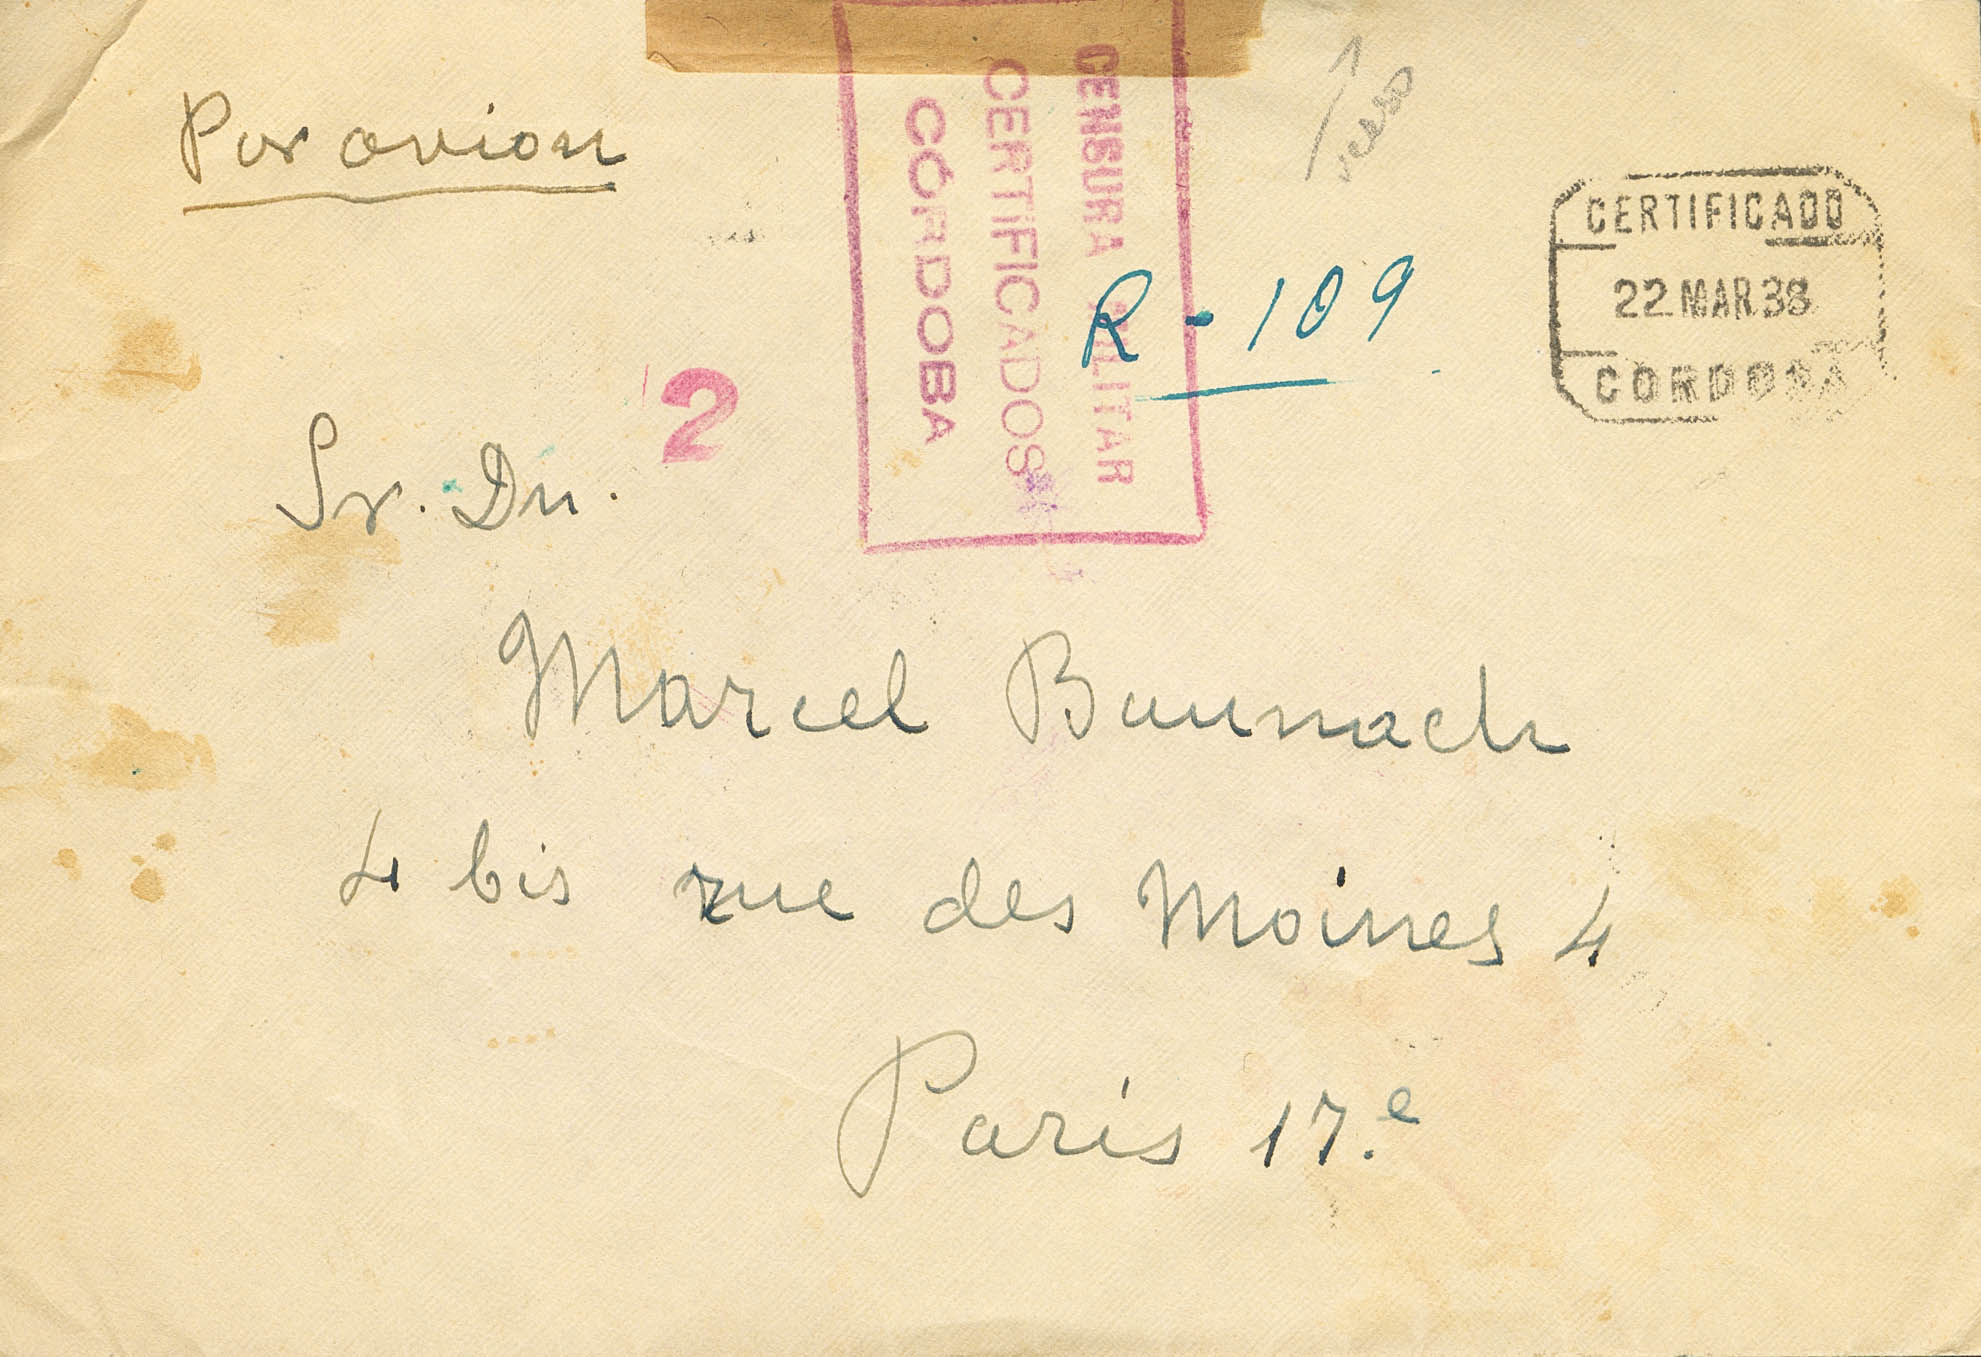 Por avion
CENSURA MILITAR
CERTIFICADOS
CÓRDOBA
verso
CERTIFICADO
22 MAR 38
CORDOBA
R - 109
2
Sr. Dn.
Marcel Bunnach
4 bis rue des Moines 4
Paris 17.e